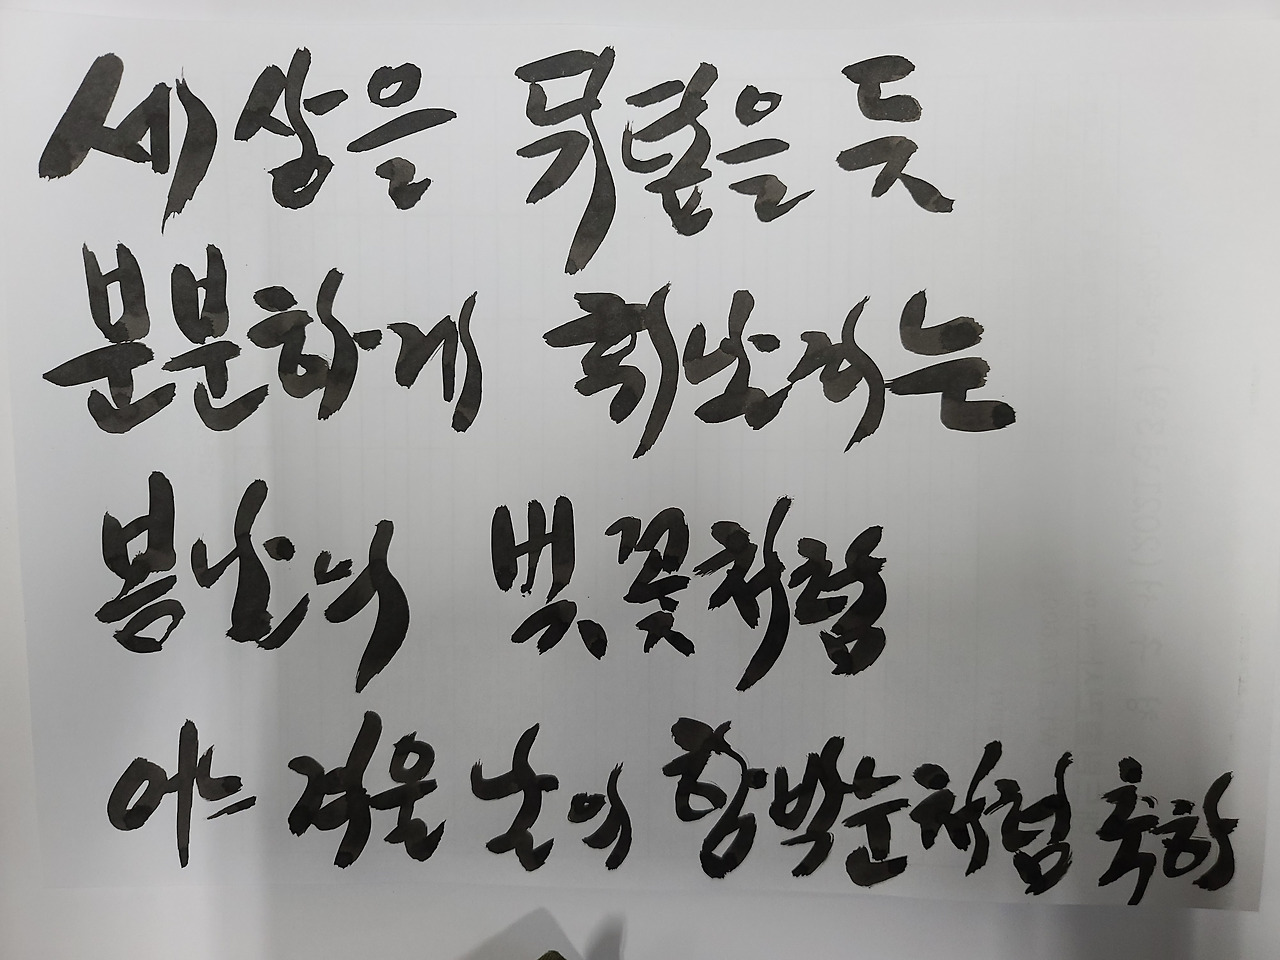 세상을 뒤덮을 듯
분분하게 휘날리는
봄날의 벚꽃처럼
어느 겨울 날의 함박눈처럼 축하